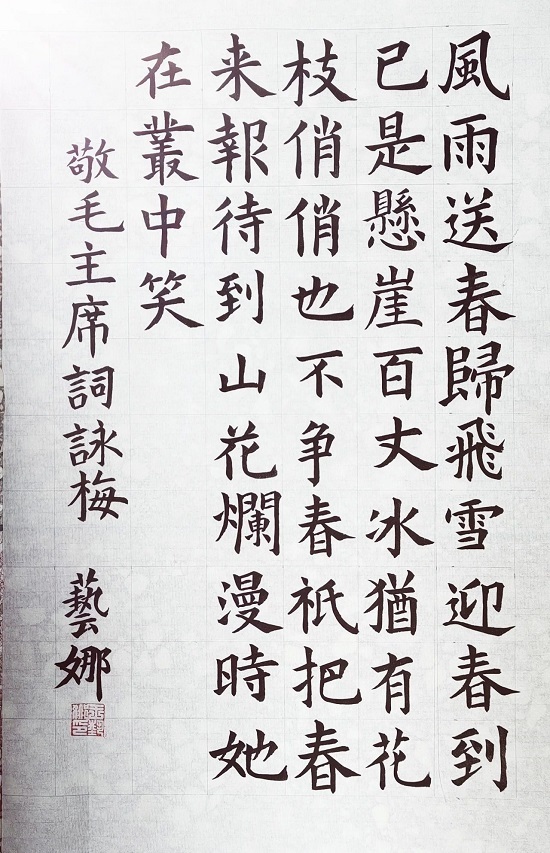 風雨送春歸飛雪迎春到
已是懸崖百丈冰猶有花
枝俏俏也不争春祇把春
来報待到山花爛漫時她
在叢中笑
敬毛主席詞詠梅 藝娜